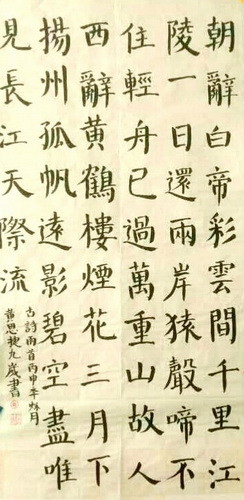 朝辭白帝彩雲間千里江
陵一日還兩岸猿聲啼不
住輕舟已過萬重山故人
西辭黃鶴樓煙花三月下
揚州孤帆遠影碧空盡唯
見長江天際流
古詩兩首丙申年秋月
黃思捷九歲書